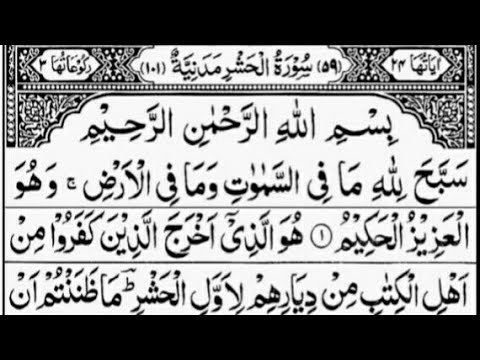 اٰيَاتُهَا ٢٤ (٥٩) سُوْرَةُ الْحَشْرِ مَدَنِيَّةٌ (١٠١) رُكُوْعَاتُهَا ٣
بِسْمِ اللهِ الرَّحْمٰنِ الرَّحِيْمِ
سَبَّحَ لِلّٰهِ مَا فِي السَّمٰوٰتِ وَمَا فِي الْاَرْضِ ۚ وَهُوَ
الْعَزِيْزُ الْحَكِيْمُ ﴿١﴾ هُوَ الَّذِيْٓ اَخْرَجَ الَّذِيْنَ كَفَرُوْا مِنْ
اَهْلِ الْكِتٰبِ مِنْ دِيَارِهِمْ لِاَوَّلِ الْحَشْرِ ؕ مَا ظَنَنْتُمْ اَنْ